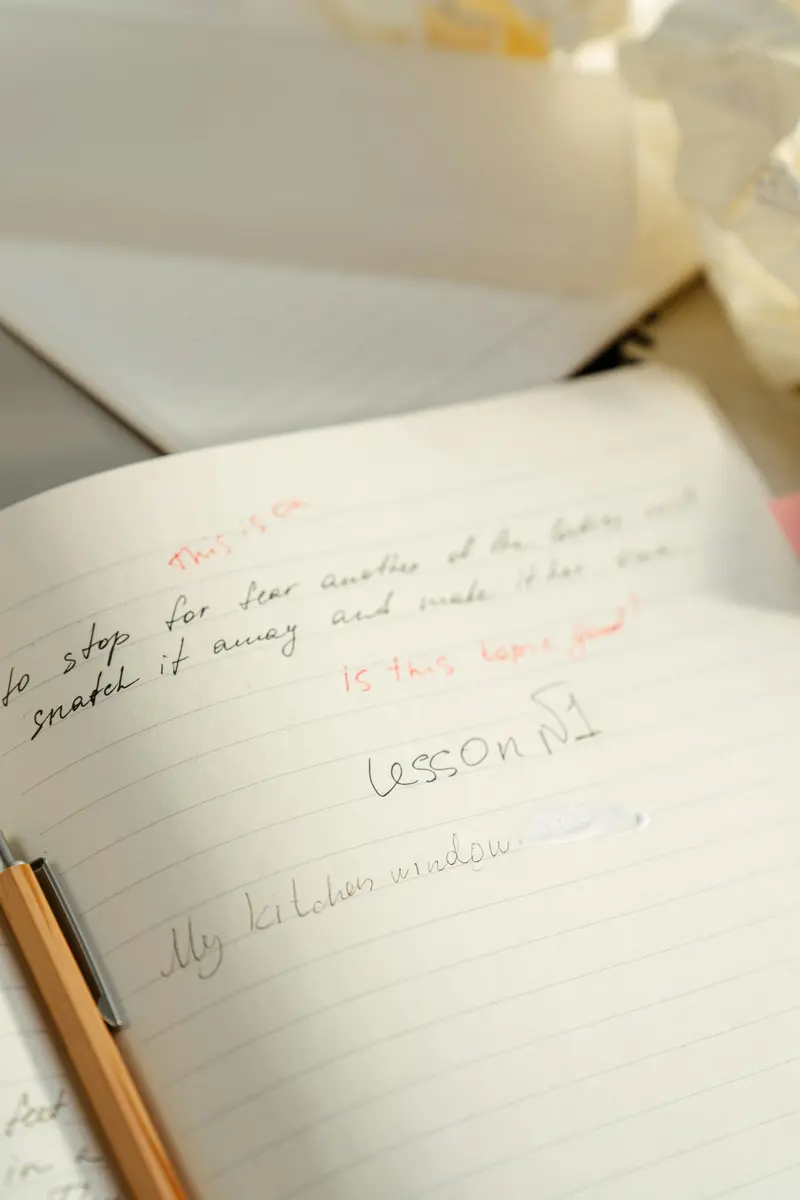 This is on
to stop for fear another of the
snatch it away and make it her own
is this topic good?
Lesson №1
My kitchen window.
feet
in a